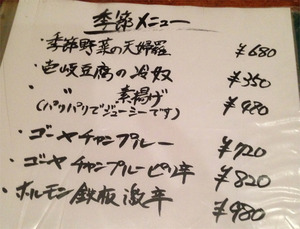 季節メニュー
・季節野菜の天婦羅 ¥680
・壱岐豆腐の冷奴 ¥350
・ 〃 素揚げ ¥480
(パリパリでジューシーです)
・ゴーヤチャンプルー ¥720
・ゴーヤチャンプルーピリ辛 ¥820
・ホルモン鉄板激辛 ¥980